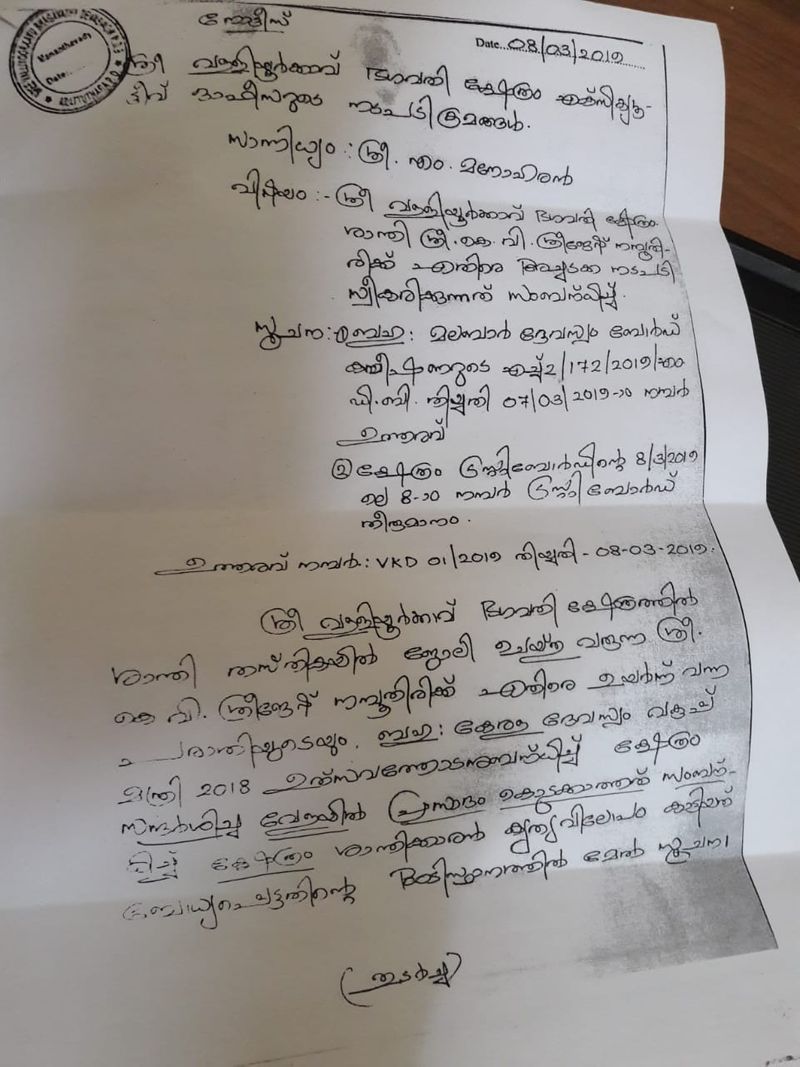 നോട്ടീസ്
Date..08/03/2019
ശ്രീ വള്ളിയൂർക്കാവ് ഭഗവതി ക്ഷേത്രം എക്സിക്യൂ-
ട്ടീവ് ഓഫീസറുടെ നടപടി ക്രമങ്ങൾ.
സാന്നിധ്യം : ശ്രീ. എം. മനോഹരൻ
വിഷയം :- ശ്രീ വള്ളിയൂർക്കാവ് ഭഗവതി ക്ഷേത്രം
ശാന്തി ശ്രീ. കെ. വി. ശ്രീജേഷ് നമ്പൂതി-
രിക്ക് എതിരെ അച്ചടക്ക നടപടി
സ്വീകരിക്കുന്നത് സംബന്ധിച്ച്.
സൂചന: ① ബഹു: മലബാർ ദേവസ്വം ബോർഡ്
കമ്മീഷണറുടെ എച്ച്2/172/2019/എം
ഡി.ബി. തിയ്യതി 07/03/2019-ാം നമ്പർ
ഉത്തരവ്
② ക്ഷേത്രം ട്രസ്റ്റിബോർഡിന്റെ 8/3/2019
ലെ 8-ാം നമ്പർ ട്രസ്റ്റി ബോർഡ്
തീരുമാനം.
ഉത്തരവ് നമ്പർ: VKD 01/2019 തിയ്യതി - 08-03-2019.
ശ്രീ വള്ളിയൂർക്കാവ് ഭഗവതി ക്ഷേത്രത്തിൽ
ശാന്തി തസ്തികയിൽ ജോലി ചെയ്തു വരുന്ന ശ്രീ.
കെ വി. ശ്രീജേഷ് നമ്പൂതിരിക്ക് എതിരെ ഉയർന്ന് വന്ന
പരാതിയുടെയും, ബഹു: കേരള ദേവസ്വം വകുപ്പ്
മന്ത്രി 2018 ഉത്സവത്തോടനുബന്ധിച്ച് ക്ഷേത്രം
സന്ദർശിച്ച വേളയിൽ പ്രസാദം കൊടുക്കാത്തത് സംബന്-
ധിച്ച് ക്ഷേത്രം ശാന്തിക്കാരൻ കൃത്യവിലോപം കാട്ടിയത്
ബോധ്യപ്പെട്ടതിന്റെ അടിസ്ഥാനത്തിൽ മേൽ സൂചന1
(തുടർച്ച)